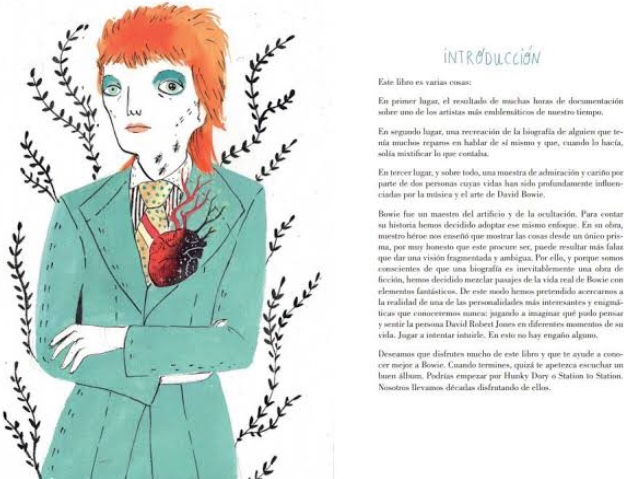 INTRODUCCIÓN
Este libro es varias cosas:
En primer lugar, el resultado de muchas horas de documentación
sobre uno de los artistas más emblemáticos de nuestro tiempo.
En segundo lugar, una recreación de la biografía de alguien que te-
nía muchos reparos en hablar de sí mismo y que, cuando lo hacía,
solía mixtificar lo que contaba.
En tercer lugar, y sobre todo, una muestra de admiración y cariño por
parte de dos personas cuyas vidas han sido profundamente influen-
ciadas por la música y el arte de David Bowie.
Bowie fue un maestro del artificio y de la ocultación. Para contar
su historia hemos decidido adoptar ese mismo enfoque. En su obra,
nuestro héroe nos enseñó que mostrar las cosas desde un único pris-
ma, por muy honesto que este procure ser, puede resultar más falaz
que dar una visión fragmentada y ambigua. Por ello, y porque somos
conscientes de que una biografía es inevitablemente una obra de
ficción, hemos decidido mezclar pasajes de la vida real de Bowie con
elementos fantásticos. De este modo hemos pretendido acercarnos a
la realidad de una de las personalidades más interesantes y enigmá-
ticas que conoceremos nunca: jugando a imaginar qué pudo pensar
y sentir la persona David Robert Jones en diferentes momentos de su
vida. Jugar a intentar intuirle. En esto no hay engaño alguno.
Deseamos que disfrutes mucho de este libro y que te ayude a cono-
cer mejor a Bowie. Cuando termines, quizá te apetezca escuchar un
buen álbum. Podrías empezar por Hunky Dory o Station to Station.
Nosotros llevamos décadas disfrutando de ellos.